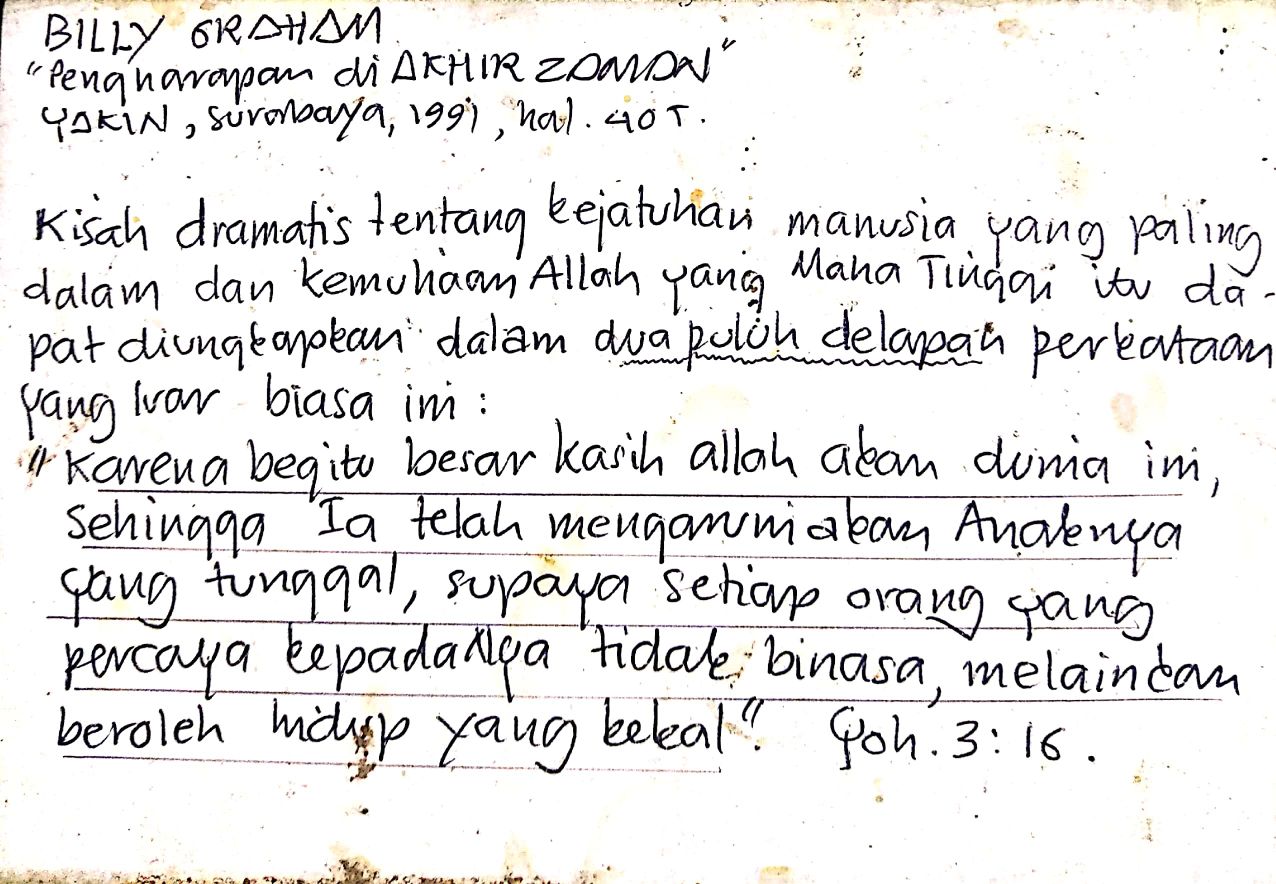 BILLY GRAHAM
"Pengharapan di AKHIR ZAMAN"
YAKIN, Surabaya, 1991, hal. 40 T.
Kisah dramatis tentang kejatuhan manusia yang paling
dalam dan kemuliaan Allah yang Maha Tinggi itu da-
pat diungkapkan dalam dua puluh delapan perkataan
yang luar biasa ini:
"Karena begitu besar kasih allah akan dunia ini,
sehingga Ia telah mengaruniakan Anaknya
yang tunggal, supaya setiap orang yang
percaya kepadaNya tidak binasa, melainkan
beroleh hidup yang kekal". Yoh. 3:16.